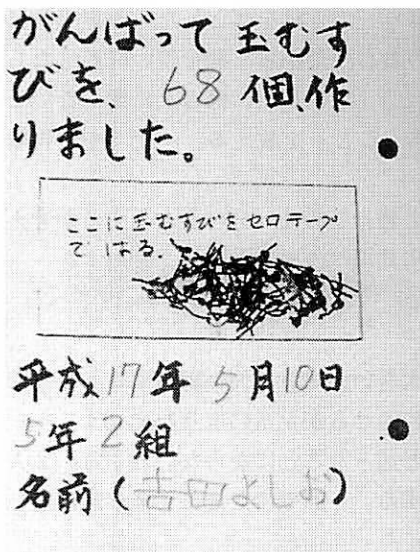 がんばって玉むす
びを、68個、作
りました。
ここに玉むすびをセロテープ
ではる。
平成17年5月10日
5年2組
名前(吉田よしお)